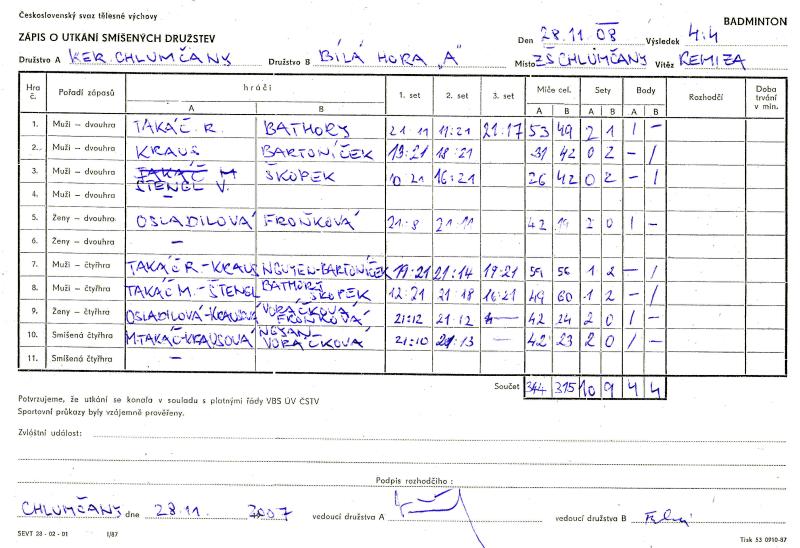 Československý svaz tělesné výchovy
BADMINTON
ZÁPIS O UTKÁNÍ SMÍŠENÝCH DRUŽSTEV
Den 28.11 08 Výsledek 4:4
Družstvo A KER CHLUMČANY Družstvo B BÍLÁ HORA "A" Místo ZŠ CHLUMČANY Vítěz REMIZA
Hra č. Pořadí zápasů hráči A B 1. set 2. set 3. set Míče cel. A B Sety A B Body A B Rozhodčí Doba trvání v min.
1. Muži – dvouhra TAKÁČ R. BATHORY 21 11 11:21 21:17 53 49 2 1 1 –
2. Muži – dvouhra KRAUS BARTONÍČEK 13:21 18:21 31 42 0 2 – 1
3. Muži – dvouhra TAKÁČ M ŠTENGL V. ŠKOPEK 10 21 16:21 26 42 0 2 – 1
4. Muži – dvouhra –
5. Ženy – dvouhra OSLADILOVÁ FROŇKOVÁ 21-8 21-11 42 19 2 0 1 –
6. Ženy – dvouhra –
7. Muži – čtyřhra TAKÁČ R - KRAUS NGUYEN-BARTONÍČEK 19:21 21:14 19:21 59 56 1 2 – 1
8. Muži – čtyřhra TAKÁČ M. - ŠTENGL BATHORY ŠKOPEK 12:21 21:18 16:21 49 60 1 2 – 1
9. Ženy – čtyřhra OSLADILOVÁ-KRAUSOVÁ VORÁČKOVÁ FROŇKOVÁ 21:12 21:12 – 42 24 2 0 1 –
10. Smíšená čtyřhra M.TAKÁČ-KRAUSOVÁ VORÁČKOVÁ 21:10 21:13 – 42 23 2 0 1 –
11. Smíšená čtyřhra –
Součet 344 315 10 9 4 4
Potvrzujeme, že utkání se konalo v souladu s platnými řády VBS ÚV ČSTV
Sportovní průkazy byly vzájemně prověřeny.
Zvláštní události:
Podpis rozhodčího :
CHLUMČANY dne 28.11. 2007 vedoucí družstva A vedoucí družstva B
SEVT 28 - 02 - 01 I/87 Tisk 53 0910-87